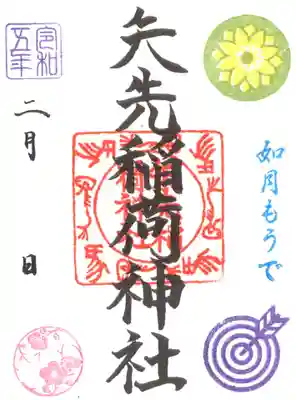 如月もうで
矢先稲荷神社
令和
五年
二月 日